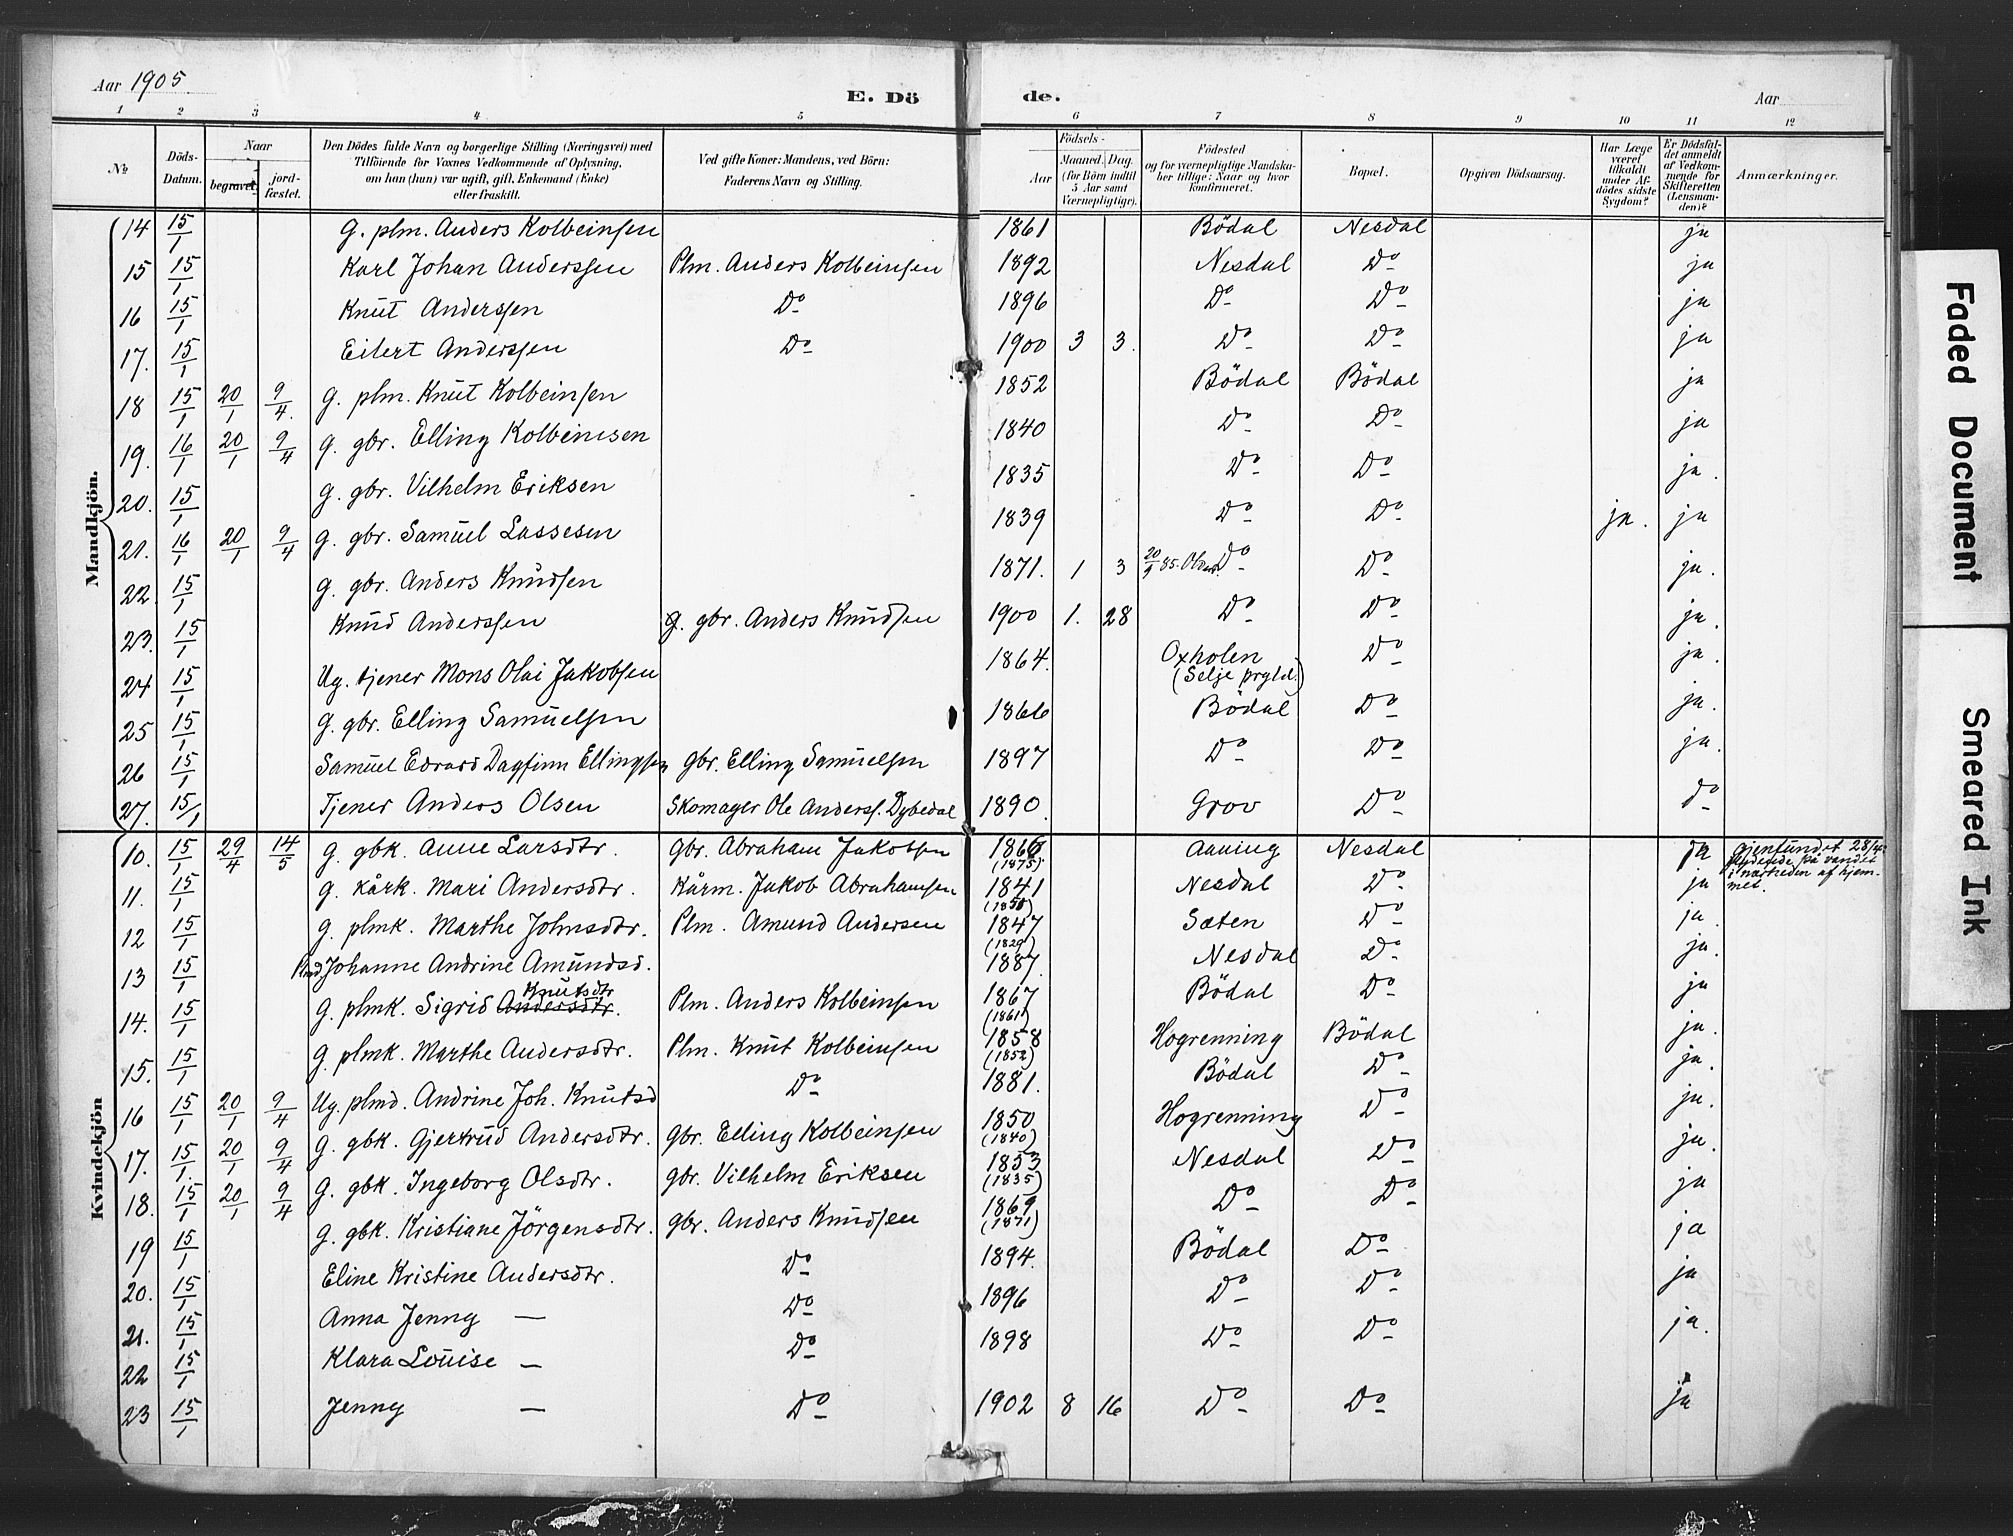 Aar 1905.
E. Döde.
Aar
1 2 3 4 5 6 7 8 9 10 11 12
No
Döds-Datum.
Naar
begravet.
jordfæstet.
Den Dödes fulde Navn og borgerlige Stilling (Næringsvei) med
Tilföiende for Voxnes Vedkommende af Oplysning,
om han (hun) var ugift, gift, Enkemand (Enke)
eller fraskilt.
Ved gifte Koner: Mandens, ved Börn:
Faderens Navn og Stilling.
Födsels-
Aar
Maaned. Dag.
(for Börn indtil
5 Aar samt
Værnepligtige).
Födested
og for værnepligtige Mandska-
ber tillige: Naar og hvor
konfirmeret.
Bopæl.
Opgiven Dödsaarsag.
Har Læge
været
tilkaldt
under Af-
dödes sidste
Sygdom?
Er Dödsfal-
det anmeldt
af Vedkom-
mende for
Skifteretten
(Lensman-
den)?
Anmærkninger.
Mandkjön.
14 15/1 G. plm. Anders Kolbeinsen 1861 Bödal Nesdal ja
15 15/1 Karl Johan Anderssen Plm. Anders Kolbeinsen 1892 Nesdal Do ja
16 15/1 Knut Anderssen Do 1896 Do Do ja
17. 15/1 Eilert Anderssen Do 1900 3 3. Do Do ja
18 15/1 20/1 9/4. G. plm. Knut Kolbeinsen 1852 Bödal Bödal ja
19. 16/1 20/1 9/4 G. gbr. Elling Kolbeinsen 1840 Do Do ja
20. 15/1 G. gbr. Vilhelm Eriksen 1835 Do Do ja.
21. 16/1 20/1 9/4 G. gbr. Samuel Lassesen 1839 Do Do ja. ja
22. 15/1 G. gbr. Anders Knudsen 1871. 1 3 20/9 85. Olden. Do Do ja.
23. 15/1 Knud Anderssen G. gbr. Anders Knudsen 1900 1. 28 Do Do ja.
24 15/1 Ug. tjener Mons Olai Jakobsen 1864. Oxholen Do ja.
(Selje prgld.)
25 15/1 G. gbr. Elling Samuelsen 1866 Bödal Do ja.
26 15/1 Samuel Edvard Dagfinn Ellingsen gbr. Elling Samuelsen 1897 Do Do ja.
27. 15/1 Tjener Anders Olsen Skomager Ole Anderss. Dybedal 1890. Grov Do do
Kvindekjön
10. 15/1 29/4 14/5 G. gbk. Anne Larsdtr. Gbr. Abraham Jakobsen 1866 (1875) Aaning Nesdal ja Gjenfundet 28/4
flydende på vandet
i nærheden af hjem-
met.
11. 15/1 G. kårk. Mari Andersdtr. Kårm. Jakob Abrahamsen 1841 Nesdal Do ja
12 15/1 G. plmk. Marthe Johnsdtr. Plm. Amund Andersen (1850) 1847 Sæten Do ja
13 15/1 Johanne Andrine Amundsd. 1887. Nesdal Do ja.
14. 15/1 G. plmk. Sigrid Andersdtr. Knutsdtr Plm. Anders Kolbeinsen 1867 (1861) Bödal Do ja
15. 15/1 G. plmk. Marthe Andersdtr. Plm. Knut Kolbeinsen 1858 (1852) Hogrenning Bödal ja.
16 15/1 20/1 9/4 Ug. plmd. Andrine Joh. Knutsd Do 1881. Bödal Do ja.
17. 15/1 20/1 9/4 G. gbk. Gjertrud Andersdtr. Gbr. Elling Kolbeinsen 1850 (1840) Hogrenning Do ja.
18. 15/1 20/1 9/4 G. gbk. Ingeborg Olsdtr. gbr. Vilhelm Eriksen 1853 (1835) Nesdal Do ja.
19 15/1 G. gbk. Kristiane Jörgensdtr. gbr. Anders Knudsen 1869 (1871) Do Do ja
20. 15/1 Eline Kristine Andersdtr. Do 1894. Bödal Do ja
21. 15/1 Anna Jenny — Do 1896 Do Do ja
22 15/1 Klara Louise — Do 1898 Do Do ja.
23 15/1 Jenny — Do 1902 8 16 Do Do ja
Faded Document
Smeared Ink